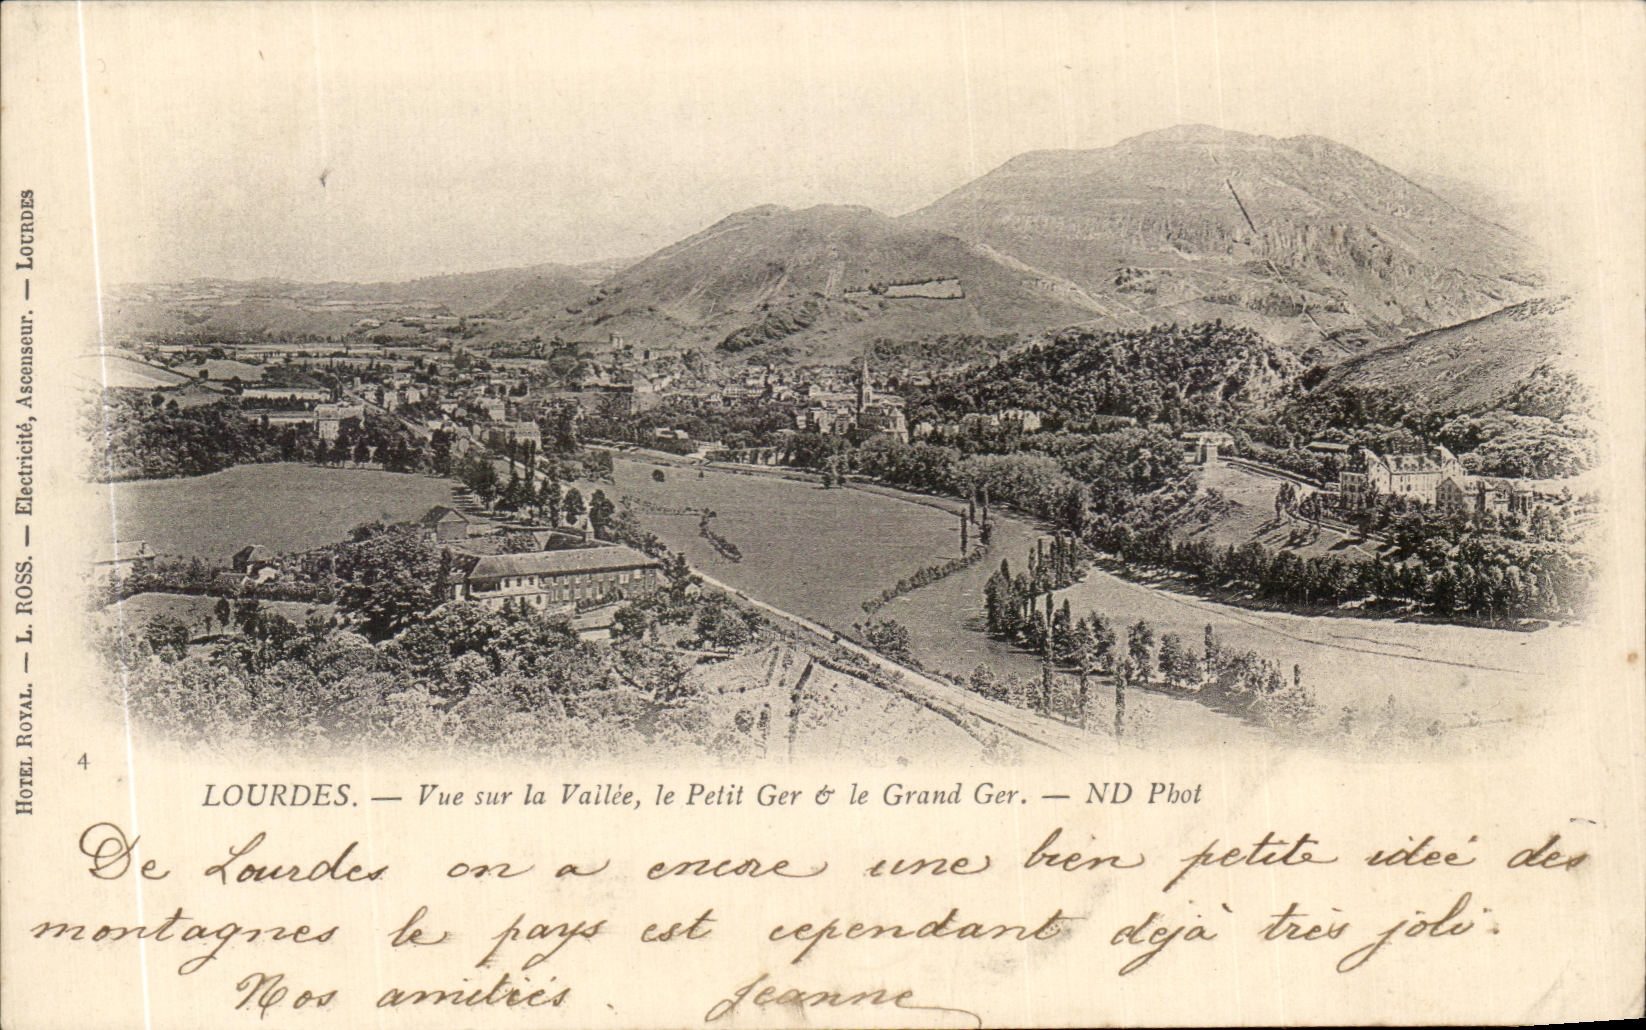 HOTEL ROYAL. — L. ROSS. — Electricité, Ascenseur. — LOURDES
4
LOURDES. — Vue sur la Vallée, le Petit Ger & le Grand Ger. — ND Phot
De Lourdes on a encore une bien petite ideé des
montagnes le pays est cependant dejà très joli.
Nos amitiés. Jeanne